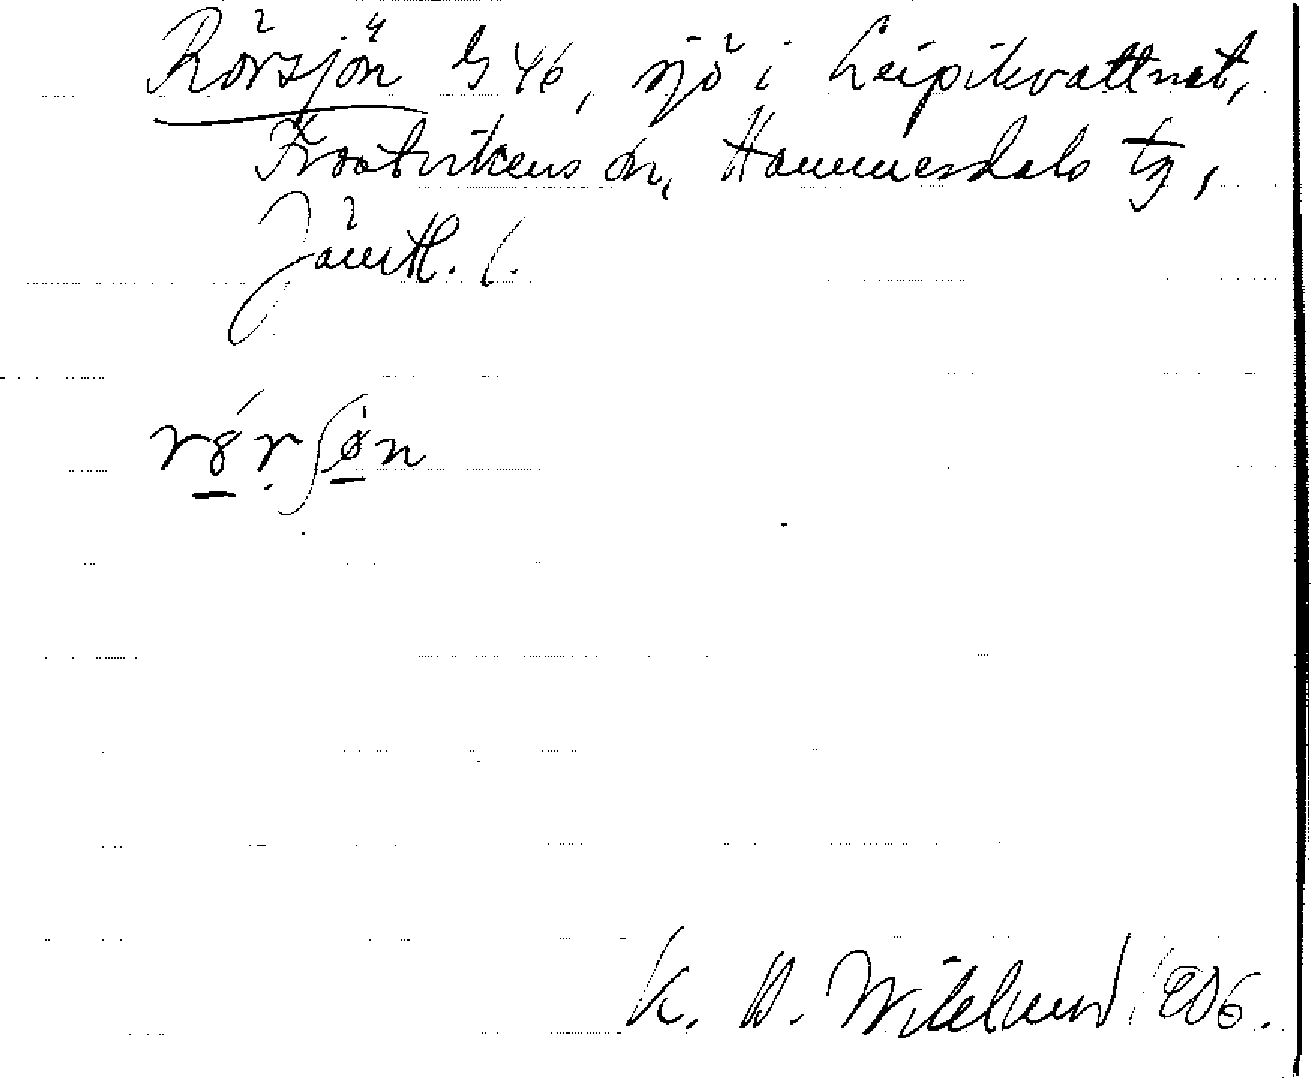 Rörsjön G 46, sjö i Leipikvattnet,
Frostvikens sn, Hammerdals tg,
Jämtl. l.
rørʃøn
K. B. Wiklund 1906.